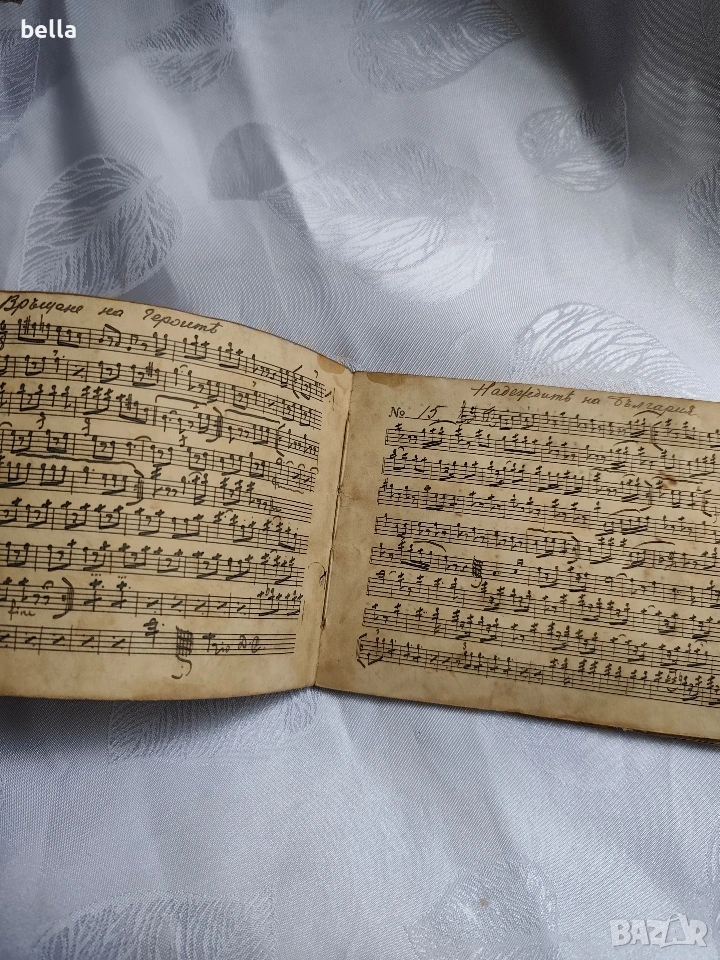 bella
Връщане на героитѣ
Надеждитѣ на България
№ 15
fine
Trio D.C.
BAZAR